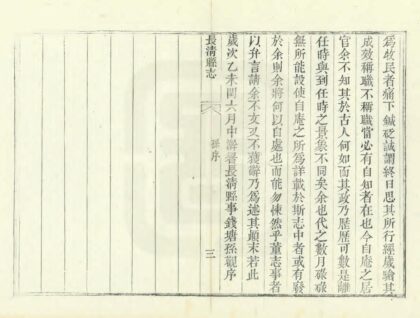 爲牧民者痛下鍼砭誠謂終日思其所行經歲繪其
成效稱職不稱職當必有自知者在也今自庵之居
官余不知其於古人何如而其政乃歷歷可數是離
任時與到任時之景象不同矣余也代之數月碌碌
無所能設使自庵之所爲詳載於斯志中者或有發
於余則余將何以自處也而能勿悚然乎董志事者
以弁言請余不文又不獲辭乃爲述其顛末若此
歲次乙未閏六月中澣署長清縣事錢塘孫觀序
長清縣志
孫序
三